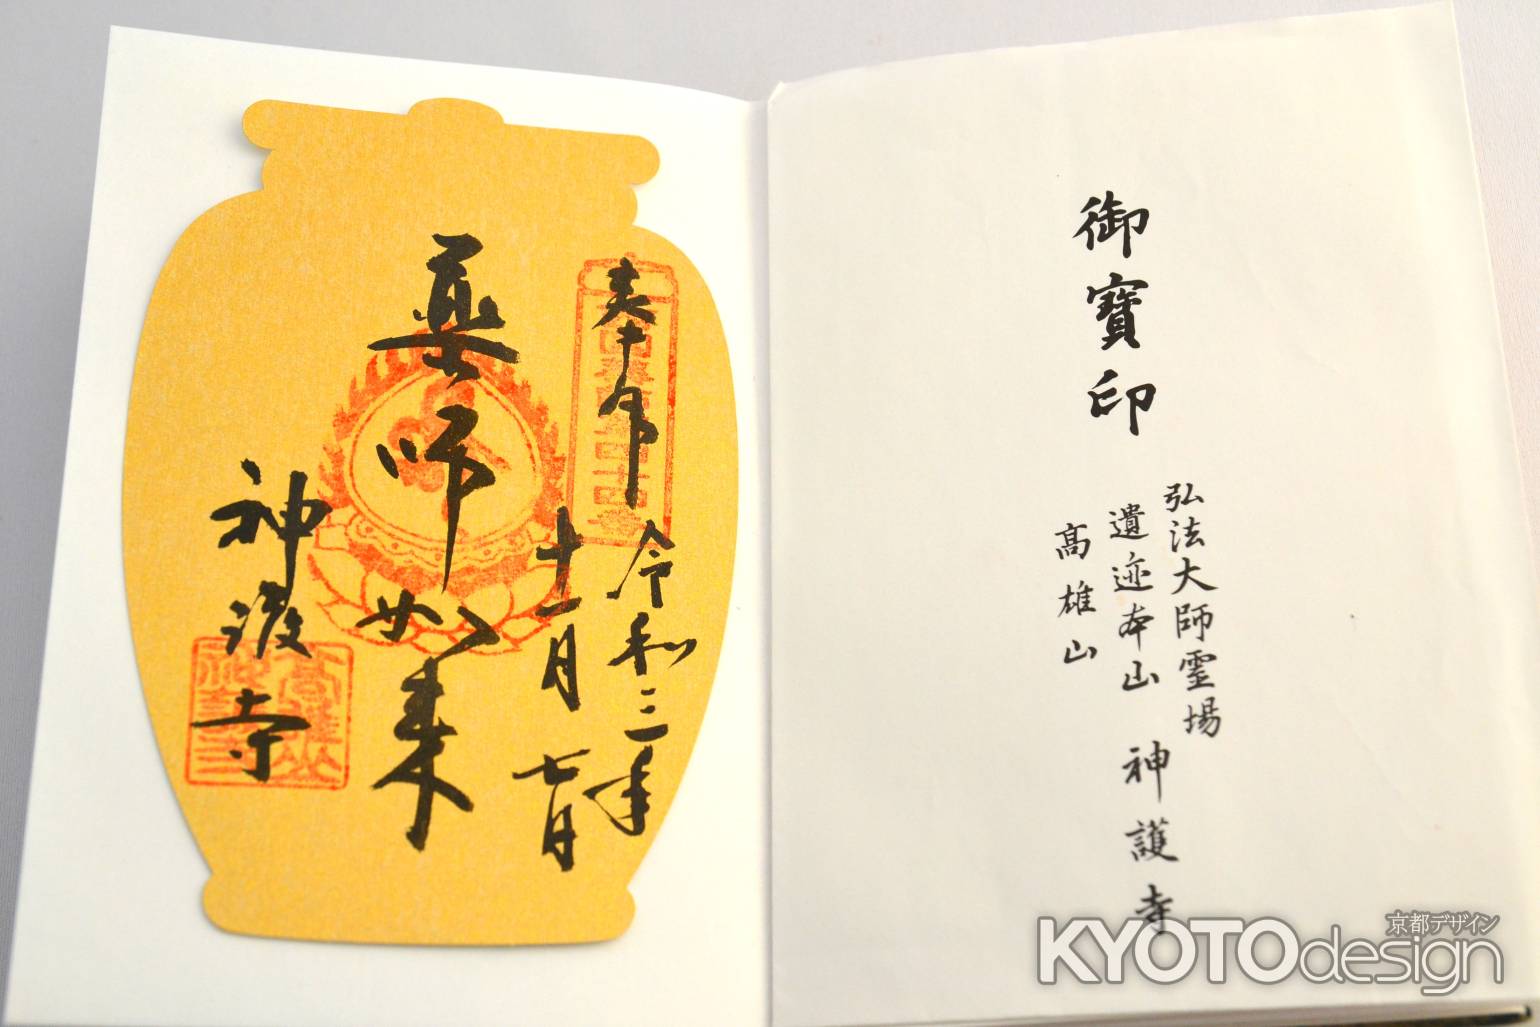 御寶印
弘法大師霊場
遺迹本山 神護寺
高雄山
奉拝
令和三年
十一月七日
薬師如来
神護寺
京都デザイン
KYOTOdesign